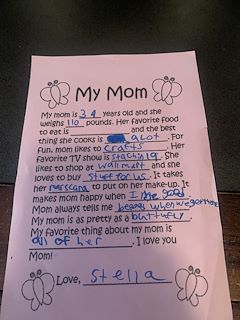 My Mom
My mom is 34 years old and she
weighs 110 pounds. Her favorite food
to eat is ____________ and the best
thing she cooks is alot. For
fun, mom likes to crafts. Her
favorite TV show is. She
likes to shop at wallmart and she
loves to buy stuff for us. It takes
her marscara to put on her make-up. It
makes mom happy when I am good.
Mom always tells me when we get home.
My mom is as pretty as a buttrfly.
My favorite thing about my mom is
all of her. I love you
Mom!
Love, Stella